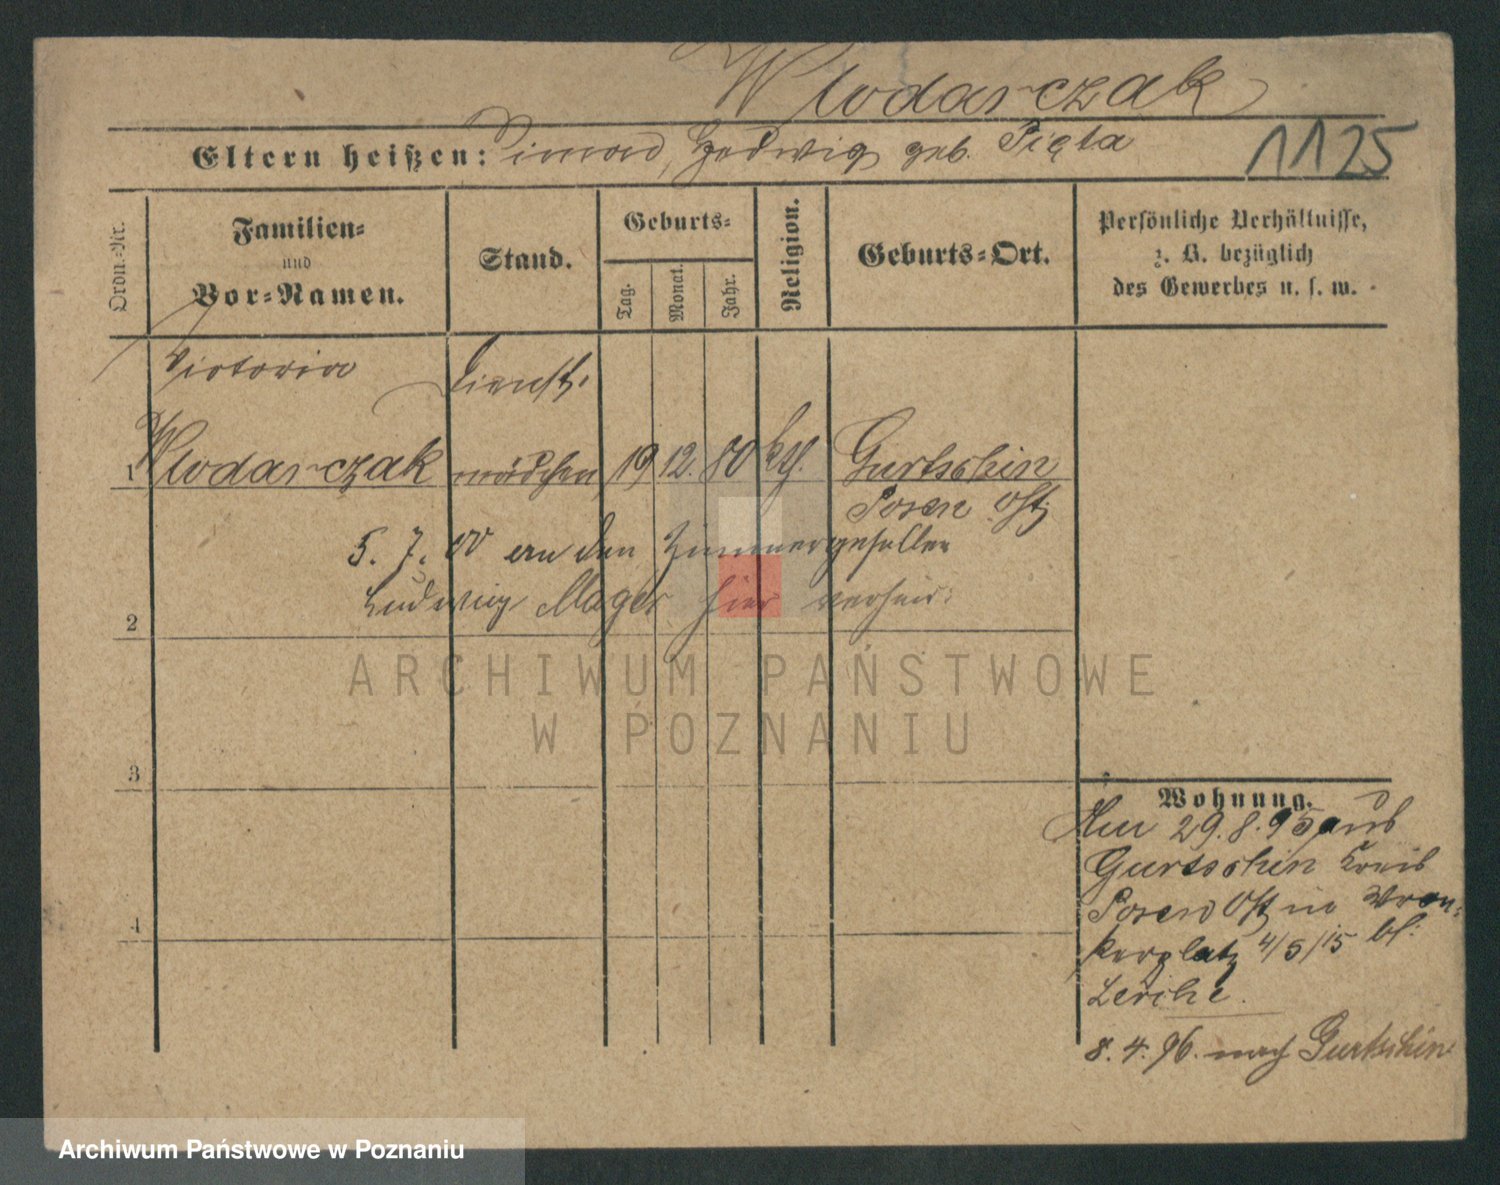 Wlodarczak
Eltern heißen: Simon, Hedwig geb. Pięta
1125
Ordn.-Nr.
Familien-
und
Vor-Namen.
Stand.
Geburts-
Tag.
Monat.
Jahr.
Religion.
Geburts-Ort.
Persönliche Verhältnisse,
z. B. bezüglich
des Gewerbes u. s. w.
Victoria Dienst-
1 Wlodarczak mädchen 19 12. 80 kth. Gurtschin
Posen Ost
5. 7. 00 an den Zimmergesellen
Ludwig Mager hier verheir:
2
3
4
Wohnung.
29. 8. 95 aus
Gurtschin Kreis
Posen Ost in Wron-
kerplatz 4/5/15 bl:
Lerche.
8. 4. 96. nach Gurtschin
ARCHIWUM PAŃSTWOWE
W POZNANIU
Archiwum Państwowe w Poznaniu